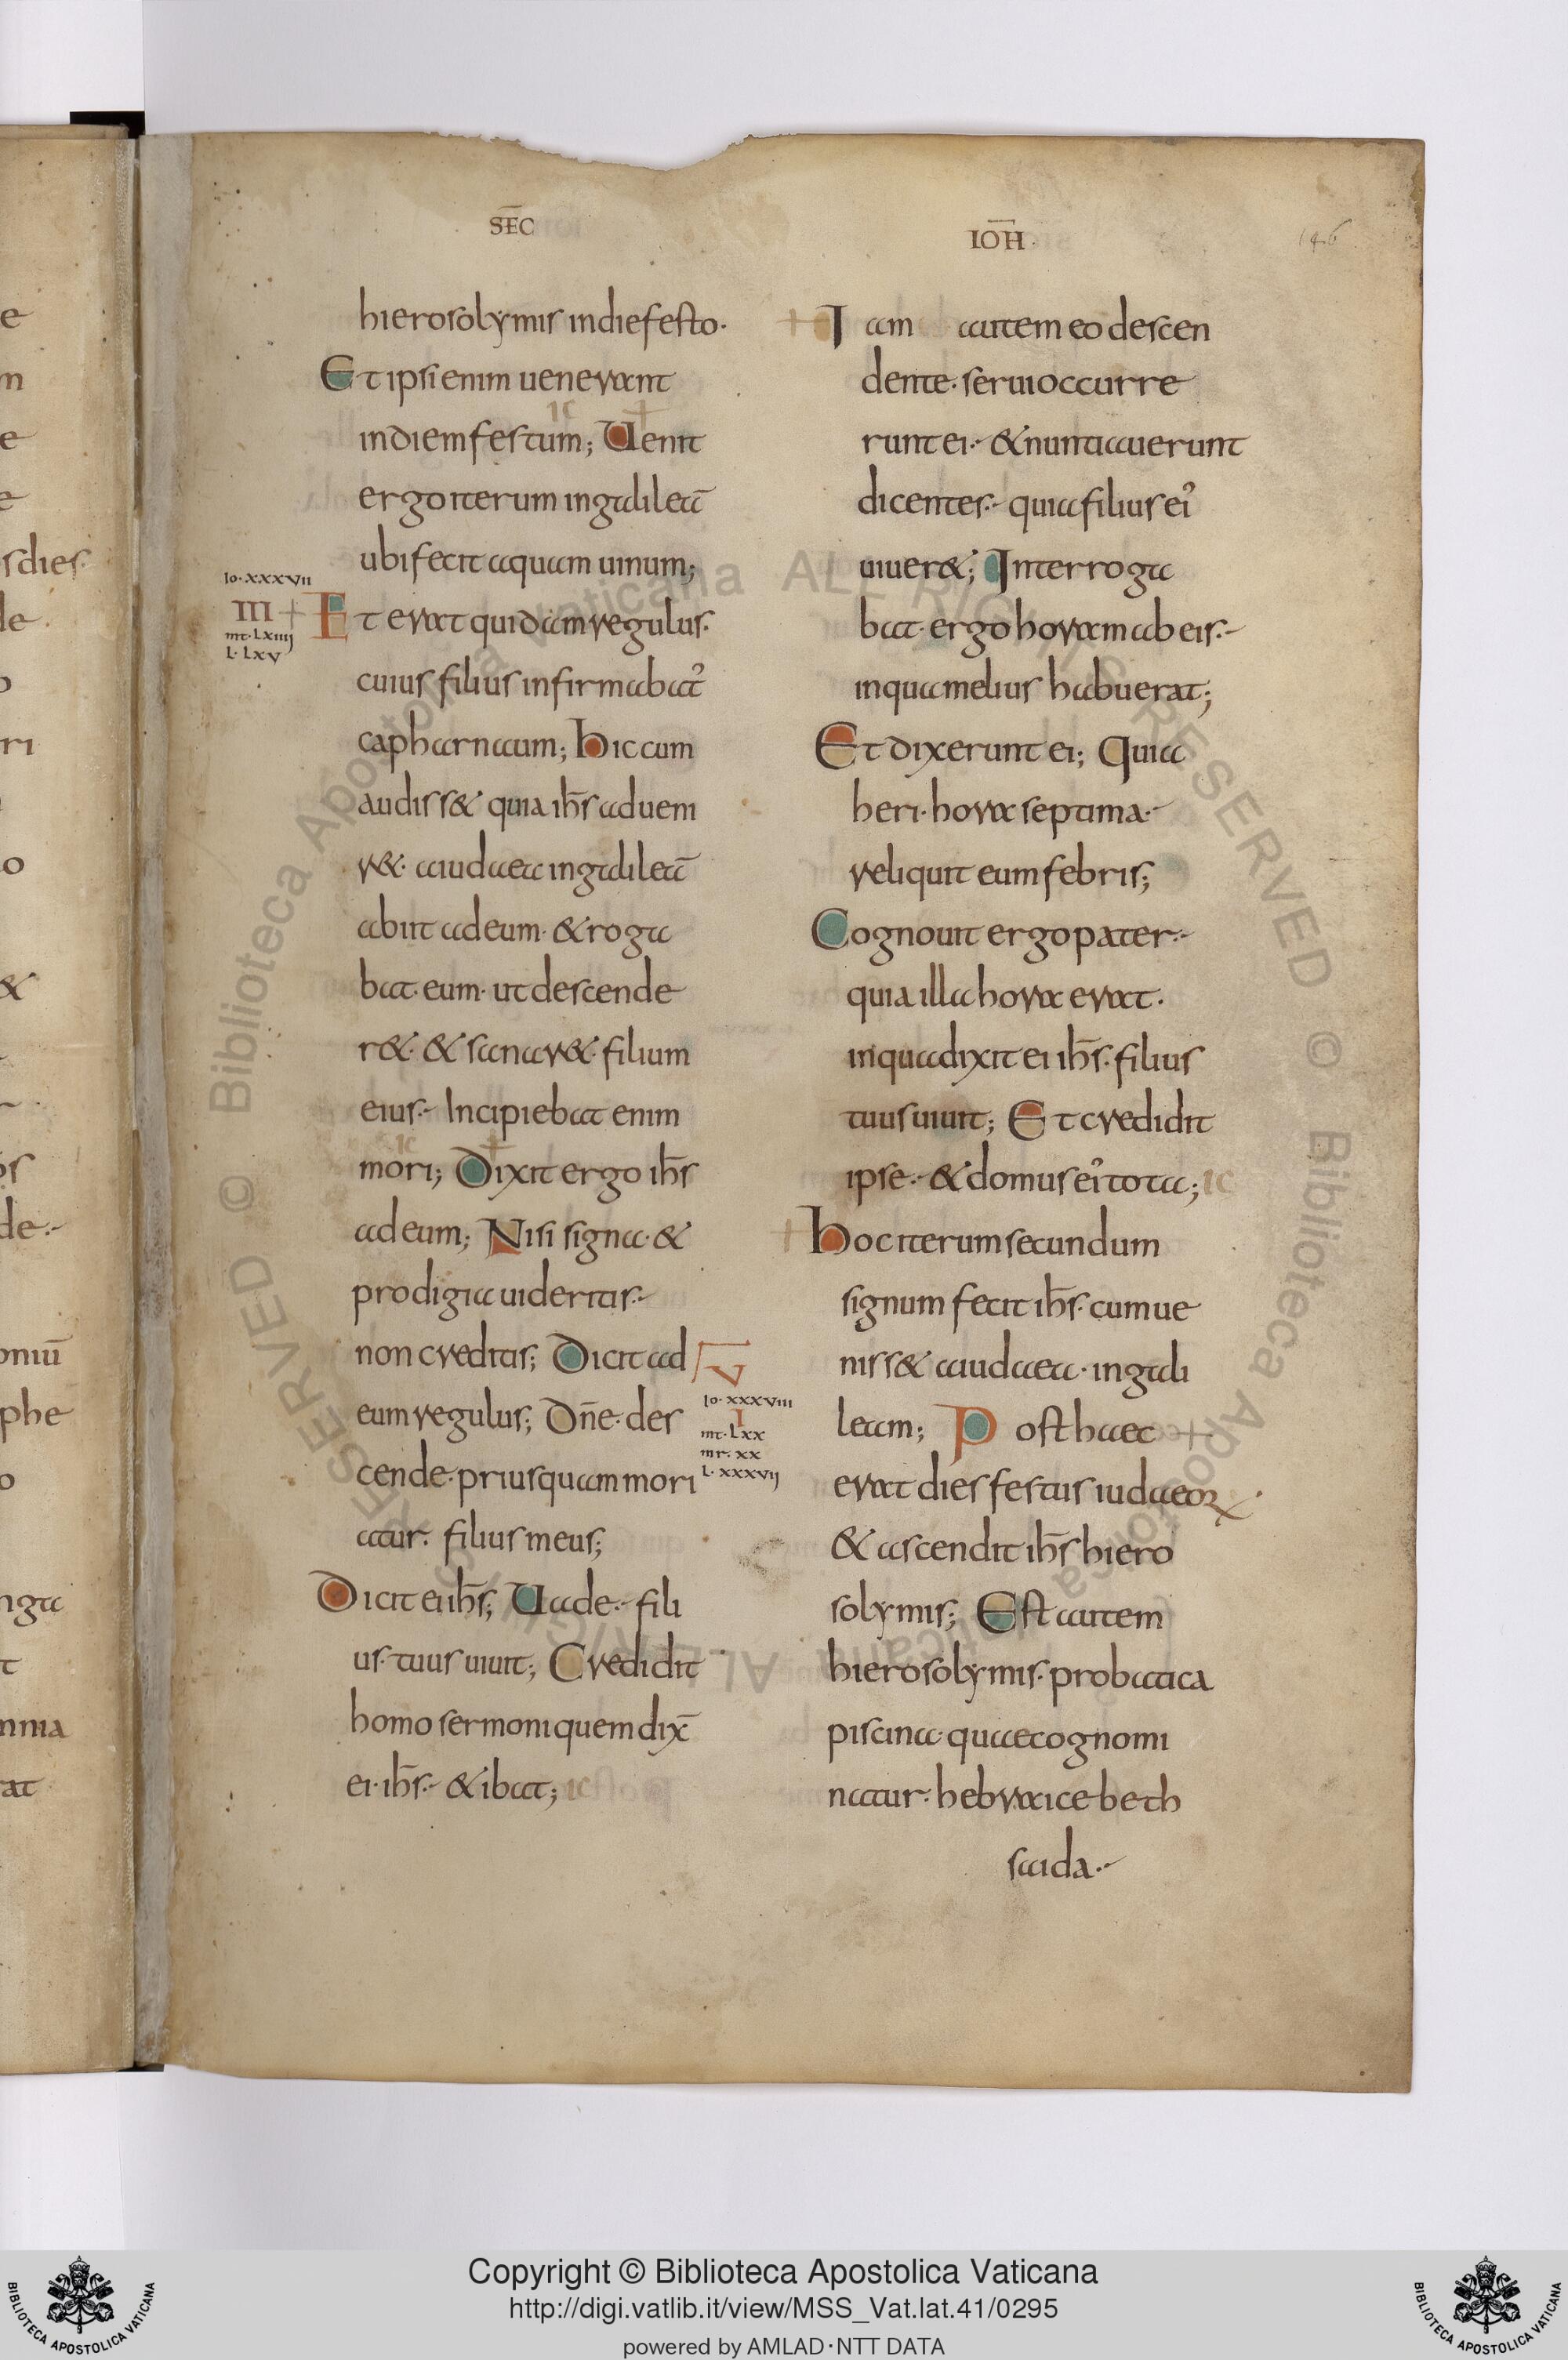 SEC̄
IOH̄
146
hierosolymis indie festo·
Et ipsi enim uenerant
indiem festum; Uenit
ergo iterum ingalileā
ubi fecit aquam uinum;
Io·XXXVII
III
mt·LXIIIJ
L·LXV
Et erat quidam regulus·
cuius filius infirmabat᷒
capharnaum; Hic cum
audiss& quia ih̄s adueni
r&· aiudaea ingalileā
abiit adeum· & roga
bat· eum· ut descende
r&· & sanar&· filium
eius·- Incipiebat enim
IC
mori; Dixit ergo ih̄s
adeum; Nisi signa· &
prodigia uideritis·-
non creditis; Dicit ad
eum regulus; Dn̄e· des
cende· priusquam mori
atur· filius meus;
Dicit ei ih̄s; Uade·- fili
us· tuus uiuit; Credidit
homo sermoni quem dix̄
ei· ih̄s·- & ibat; IC
V
Io·XXXVIII
I
mt·LXX
mr·XX
L·XXXVIJ
Iam autem eo descen
dente· serui occurre
runt ei·- & nuntiauerunt
dicentes·- quia filius ei᷒
uiuer&; Interroga
bat· ergo horam ab eis·-
inqua melius habuerat;
Et dixerunt ei; Quia
heri· hora septima·-
reliquit eum febris;
Cognouit ergo pater·-
quia illa hora erat·
inqua dixit ei ih̄s· filius
tuus uiuit; Et credidit
ipse·- & domus ei᷒ tota; IC
Hoc iterum secundum
signum fecit ih̄s· cum ue
niss& aiudaea· ingali
leam; Post haec
erat dies festus iudaeoꝝ
& ascendit ih̄s hiero
solymis; Est autem
hierosolymis· probatica
piscina· quae cognomi
natur· hebraice beth
saida·-
Copyright © Biblioteca Apostolica Vaticana
http://digi.vatlib.it/view/MSS_Vat.lat.41/0295
powered by AMLAD·NTT DATA